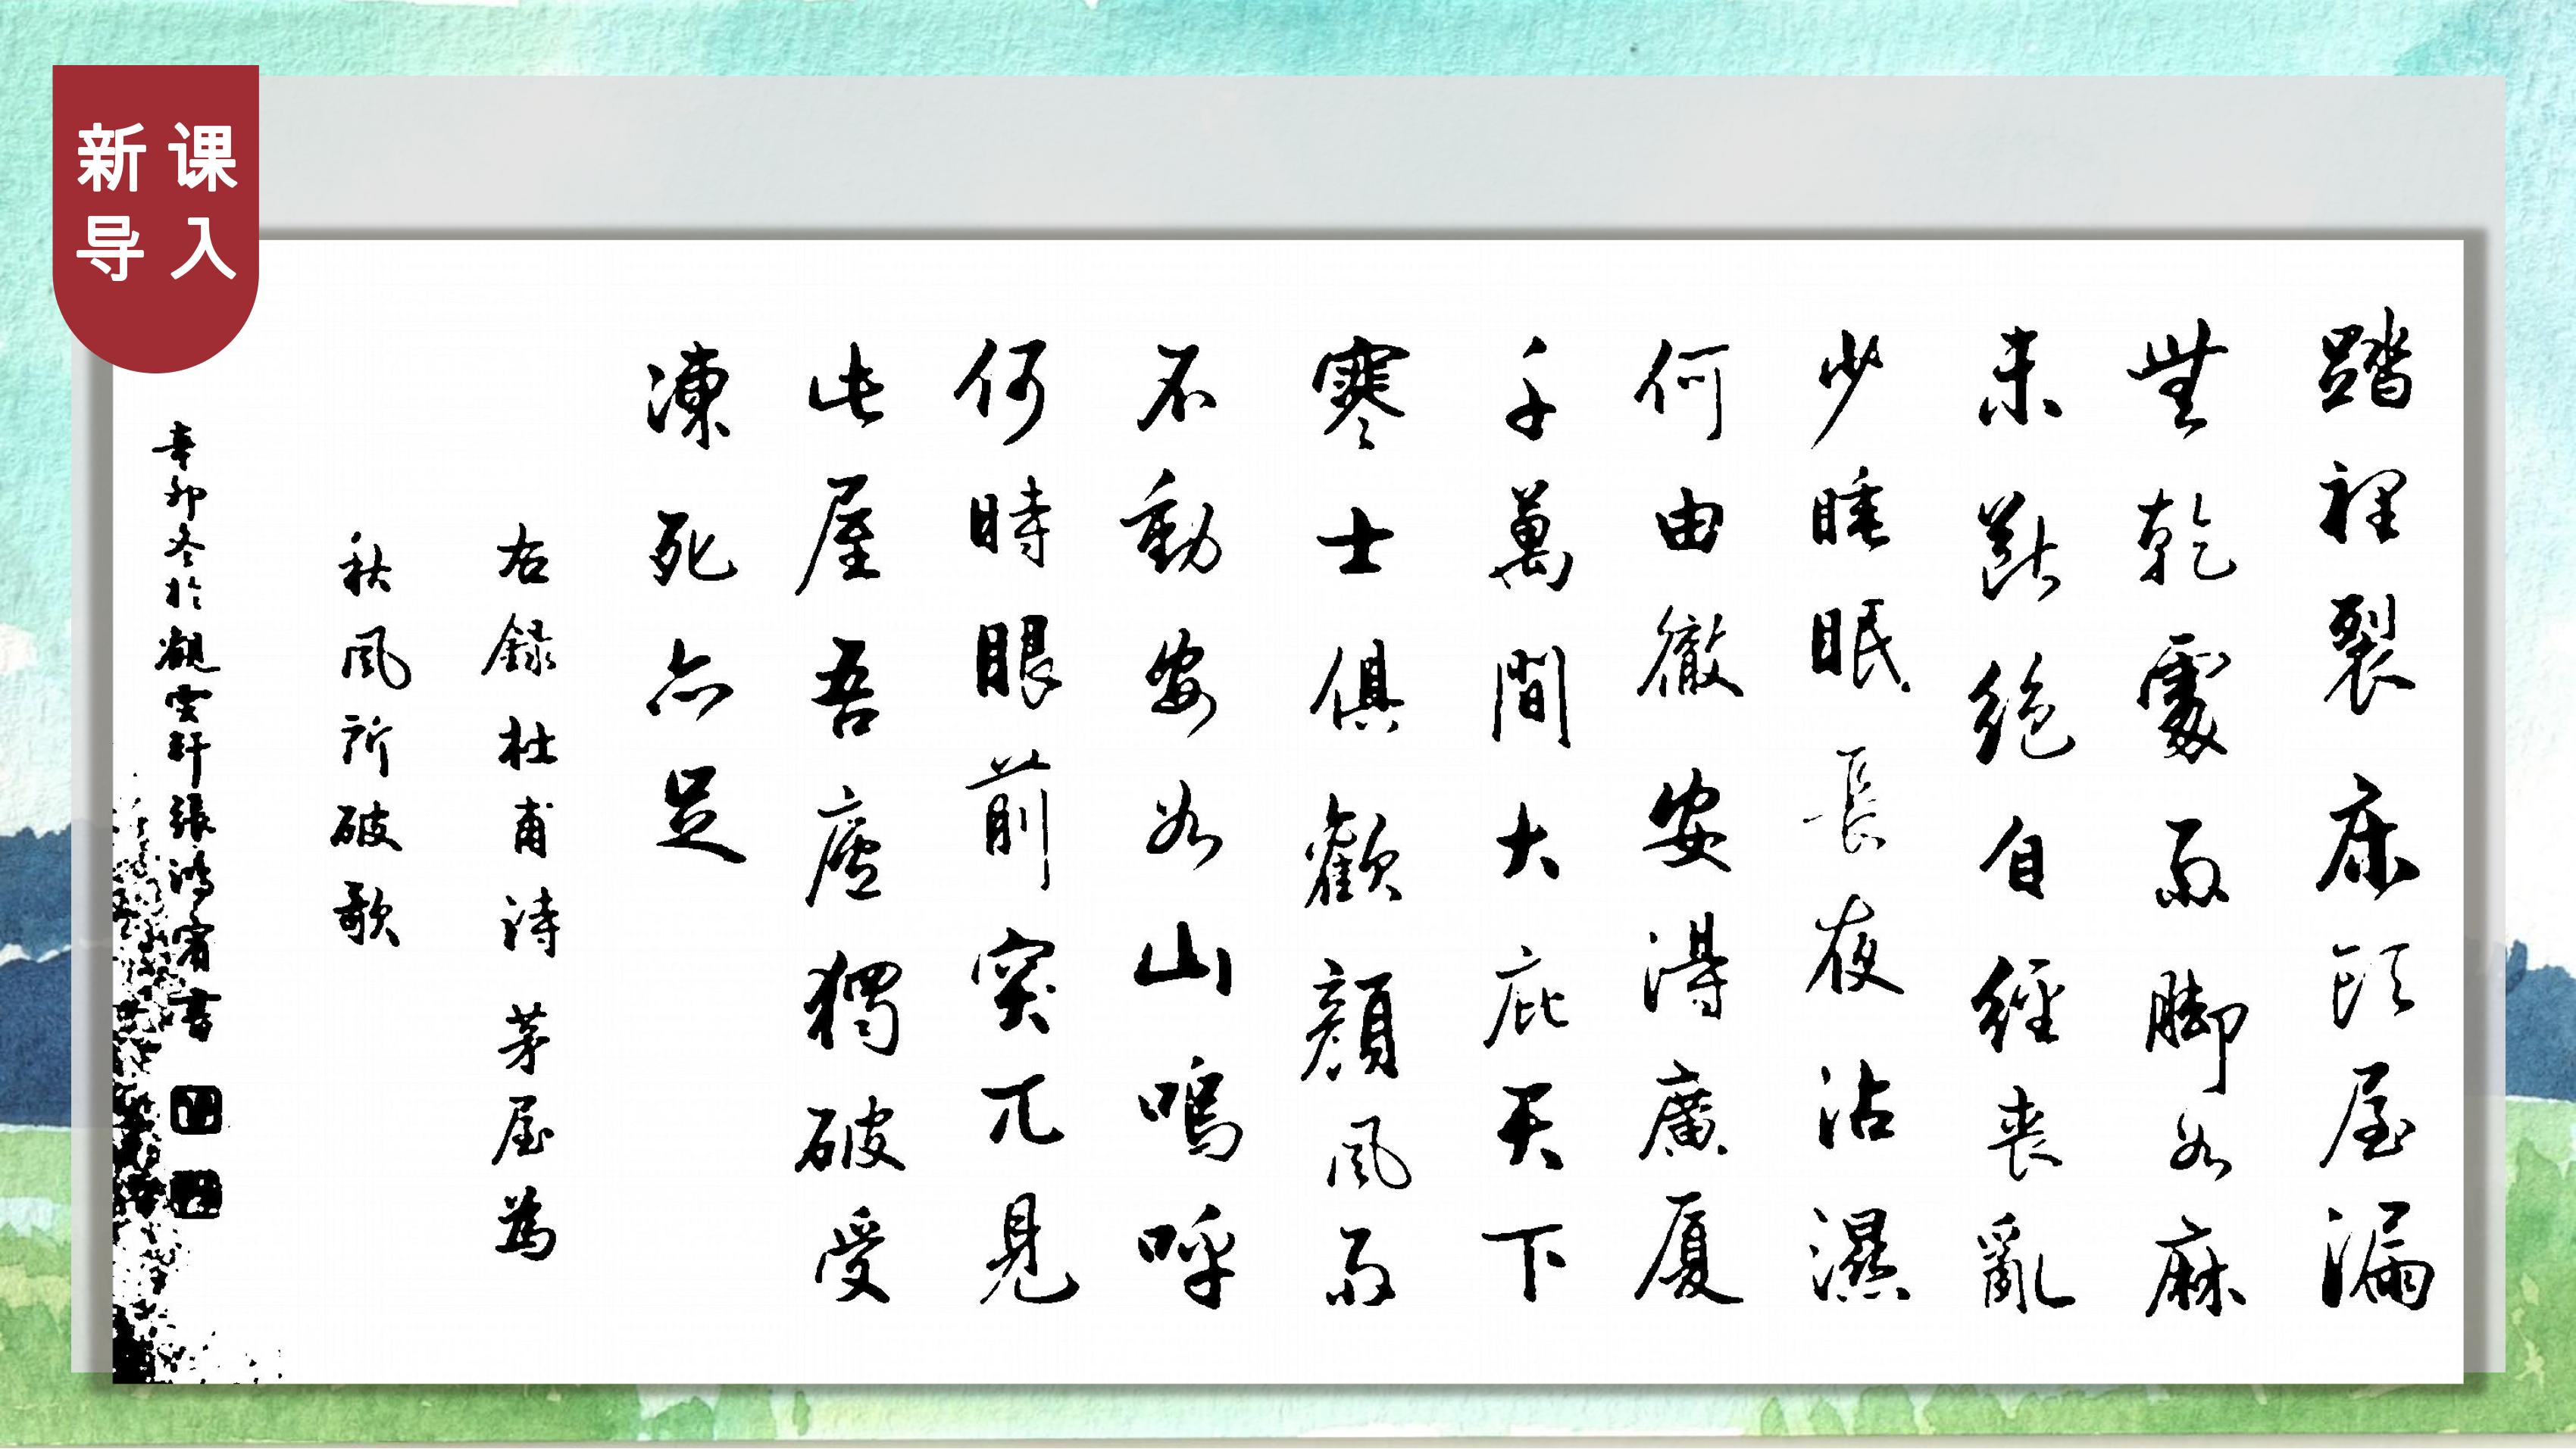 新课
导入
踏裡裂床頭屋漏
無乾處雨脚如麻
未斷絶自經喪亂
少睡眠長夜沾濕
何由徹安得廣厦
千萬間大庇天下
寒士俱歡顔風雨
不動安如山嗚呼
何時眼前突兀見
此屋吾廬獨破受
凍死亦足
右録杜甫詩茅屋為
秋風所破歌
辛卯冬於觀雲軒張鴻賓書